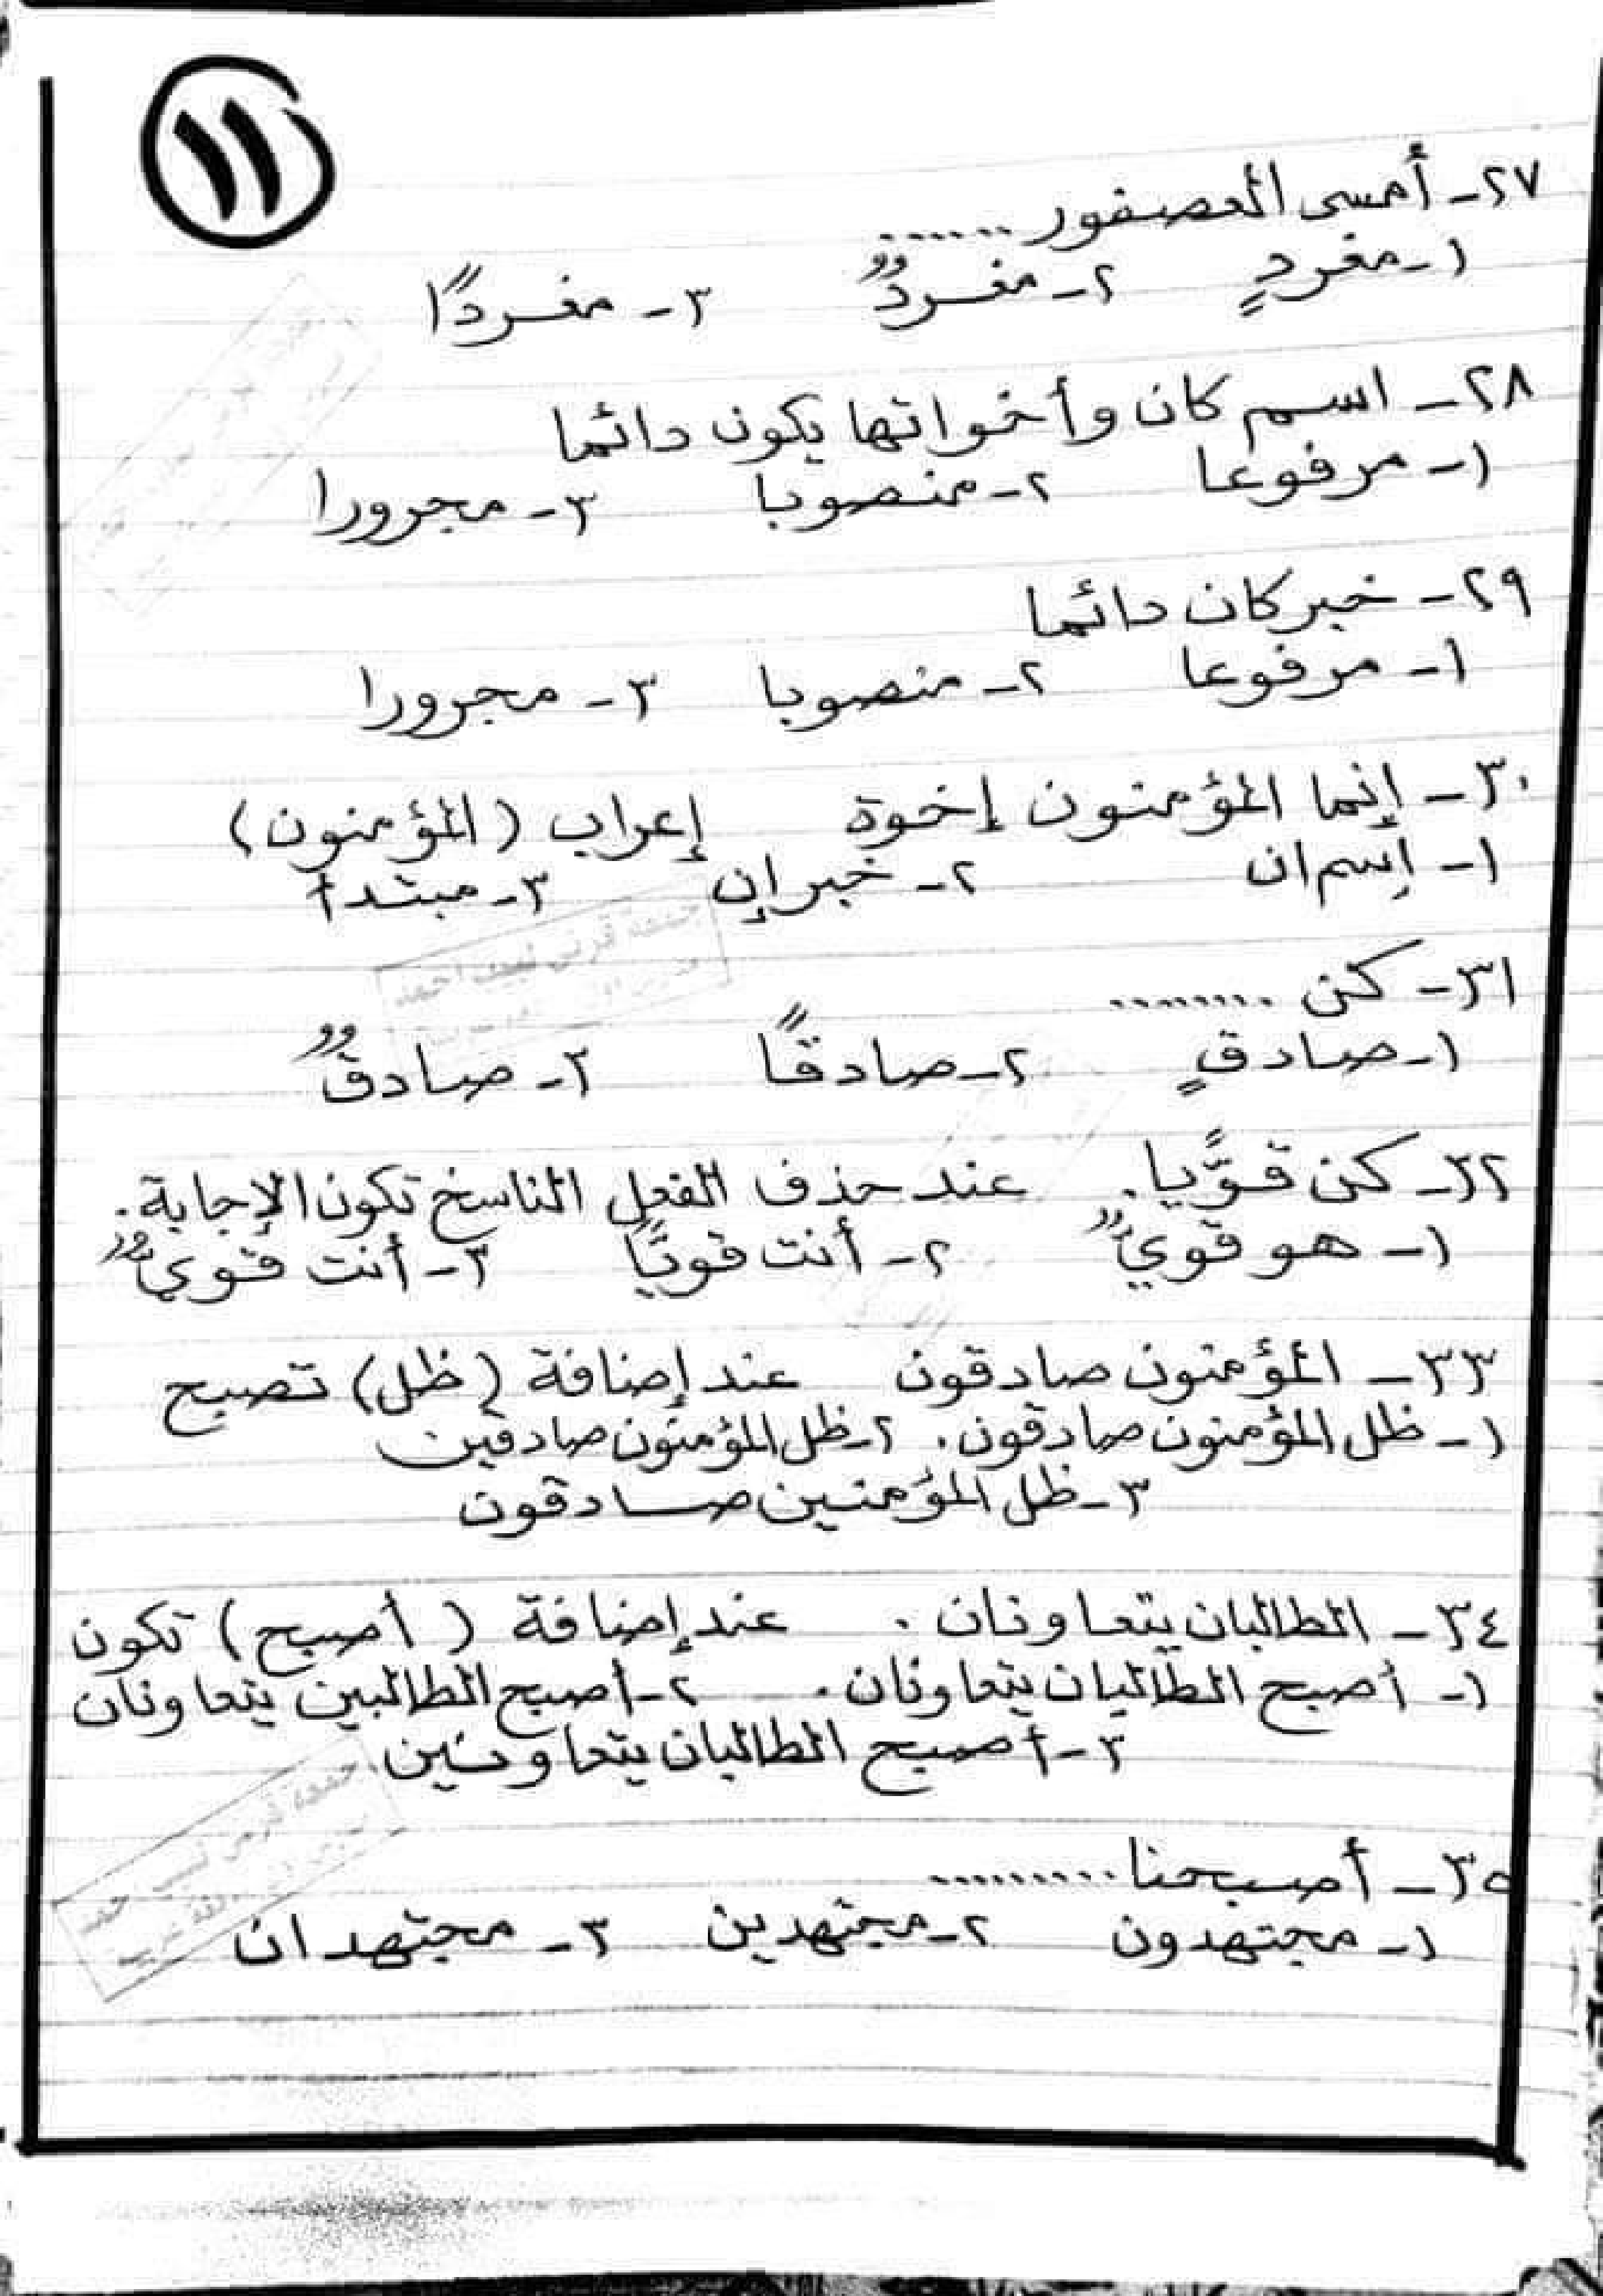 ١١
٢٧- أمسى العصفور ......
١- مغردٍ ٢- مغردٌ ٣- مغردًا
٢٨- اسم كان وأخواتها يكون دائما
١- مرفوعا ٢- منصوبا ٣- مجرورا
٢٩- خبر كان دائما
١- مرفوعا ٢- منصوبا ٣- مجرورا
٣٠- إنما المؤمنون إخوة إعراب (المؤمنون)
١- إسم ان ٢- خبر إن ٣- مبتدأ
جمعة قرني لبيب احمد
٣١- كن .........
١- صادقٍ ٢- صادقًا ٣- صادقٌ
٣٢- كن قويًّا. عند حذف الفعل الناسخ تكون الإجابة.
١- هو قويٌ ٢- أنت قويًا ٣- أنت قويٌ
٣٣- المؤمنون صادقون عند إضافة (ظل) تصبح
١- ظل المؤمنون صادقون. ٢- ظل المؤمنون صادقين
٣- ظل المؤمنين صادقون
٣٤- الطالبان يتعاونان. عند إضافة (أصبح) تكون
١- أصبح الطالبان يتعاونان. ٢- أصبح الطالبين يتعاونان
٣- أصبح الطالبان يتعاونين.
جمعة قرني لبيب احمد
٣٥- أصبحنا ..........
١- مجتهدون ٢- مجتهدين ٣- مجتهدان